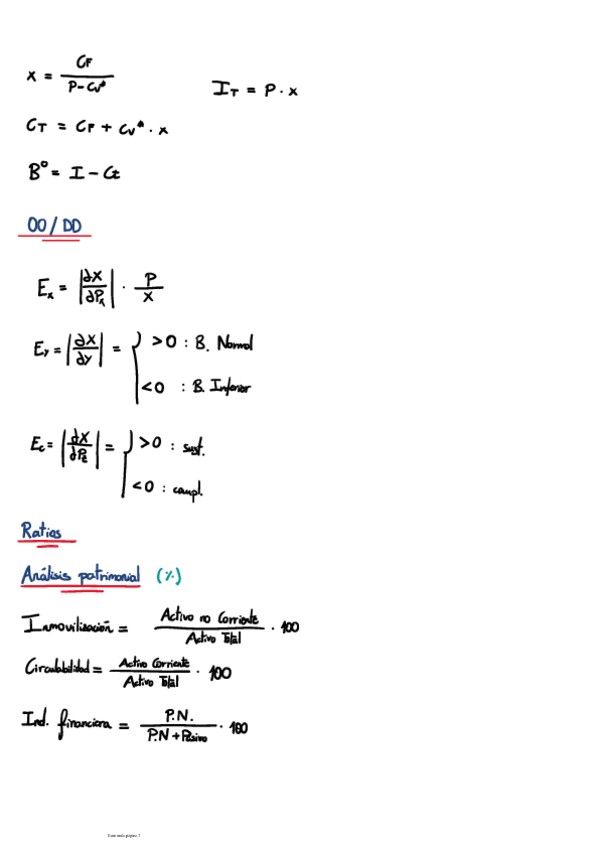 x = CF / (P - Cv*)
IT = P · x
CT = CF + Cv* · x
Bº = I - Ct
OO / DD
Ex = |∂X / ∂Px| · P / X
Ey = |∂X / ∂y| = { >0 : B. Normal
<0 : B. Inferior
Ec = |∂X / ∂Pz| = { >0 : sust.
<0 : compl.
Ratios
Análisis patrimonial (%)
Inmovilización = Activo no Corriente / Activo Total · 100
Circulabilidad = Activo Corriente / Activo Total · 100
Ind. financiera = P.N. / P.N + Pasivo · 100